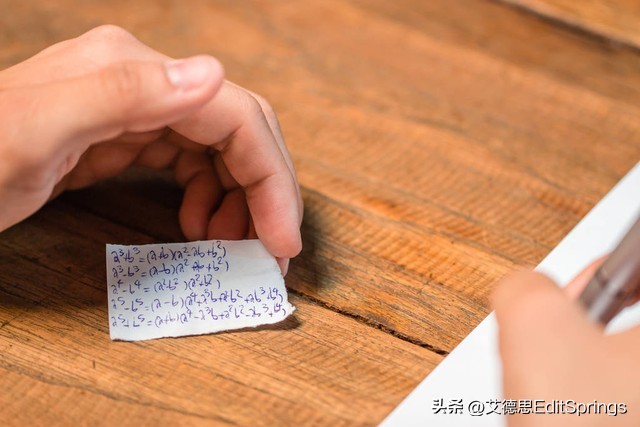 a³+b³=(a+b)(a²-ab+b²)
a³-b³=(a-b)(a²+ab+b²)
a⁴-b⁴=(a²-b²)(a²+b²)
a⁵-b⁵=(a-b)(a⁴+a³b+a²b²+ab³+b⁴)
a⁵+b⁵=(a+b)(a⁴-a³b+a²b²-ab³+b⁴)
头条 @艾德思EditSprings